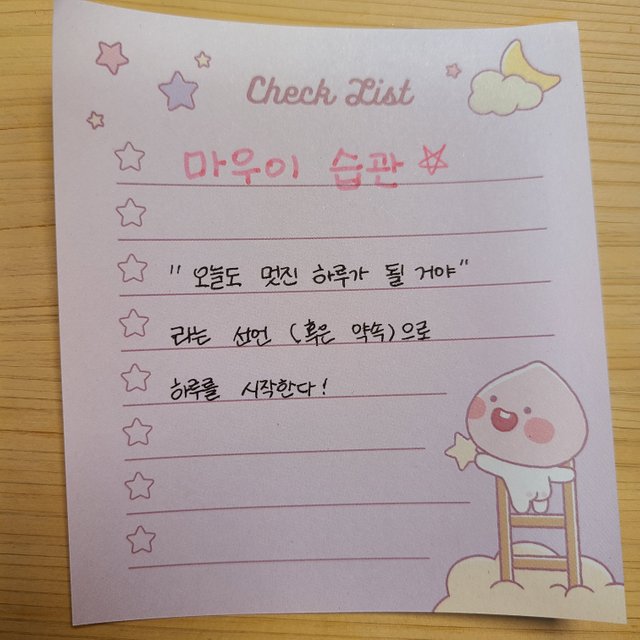 Check List
마우이 습관
" 오늘도 멋진 하루가 될 거야"
라는 선언 (혹은 약속)으로
하루를 시작한다!